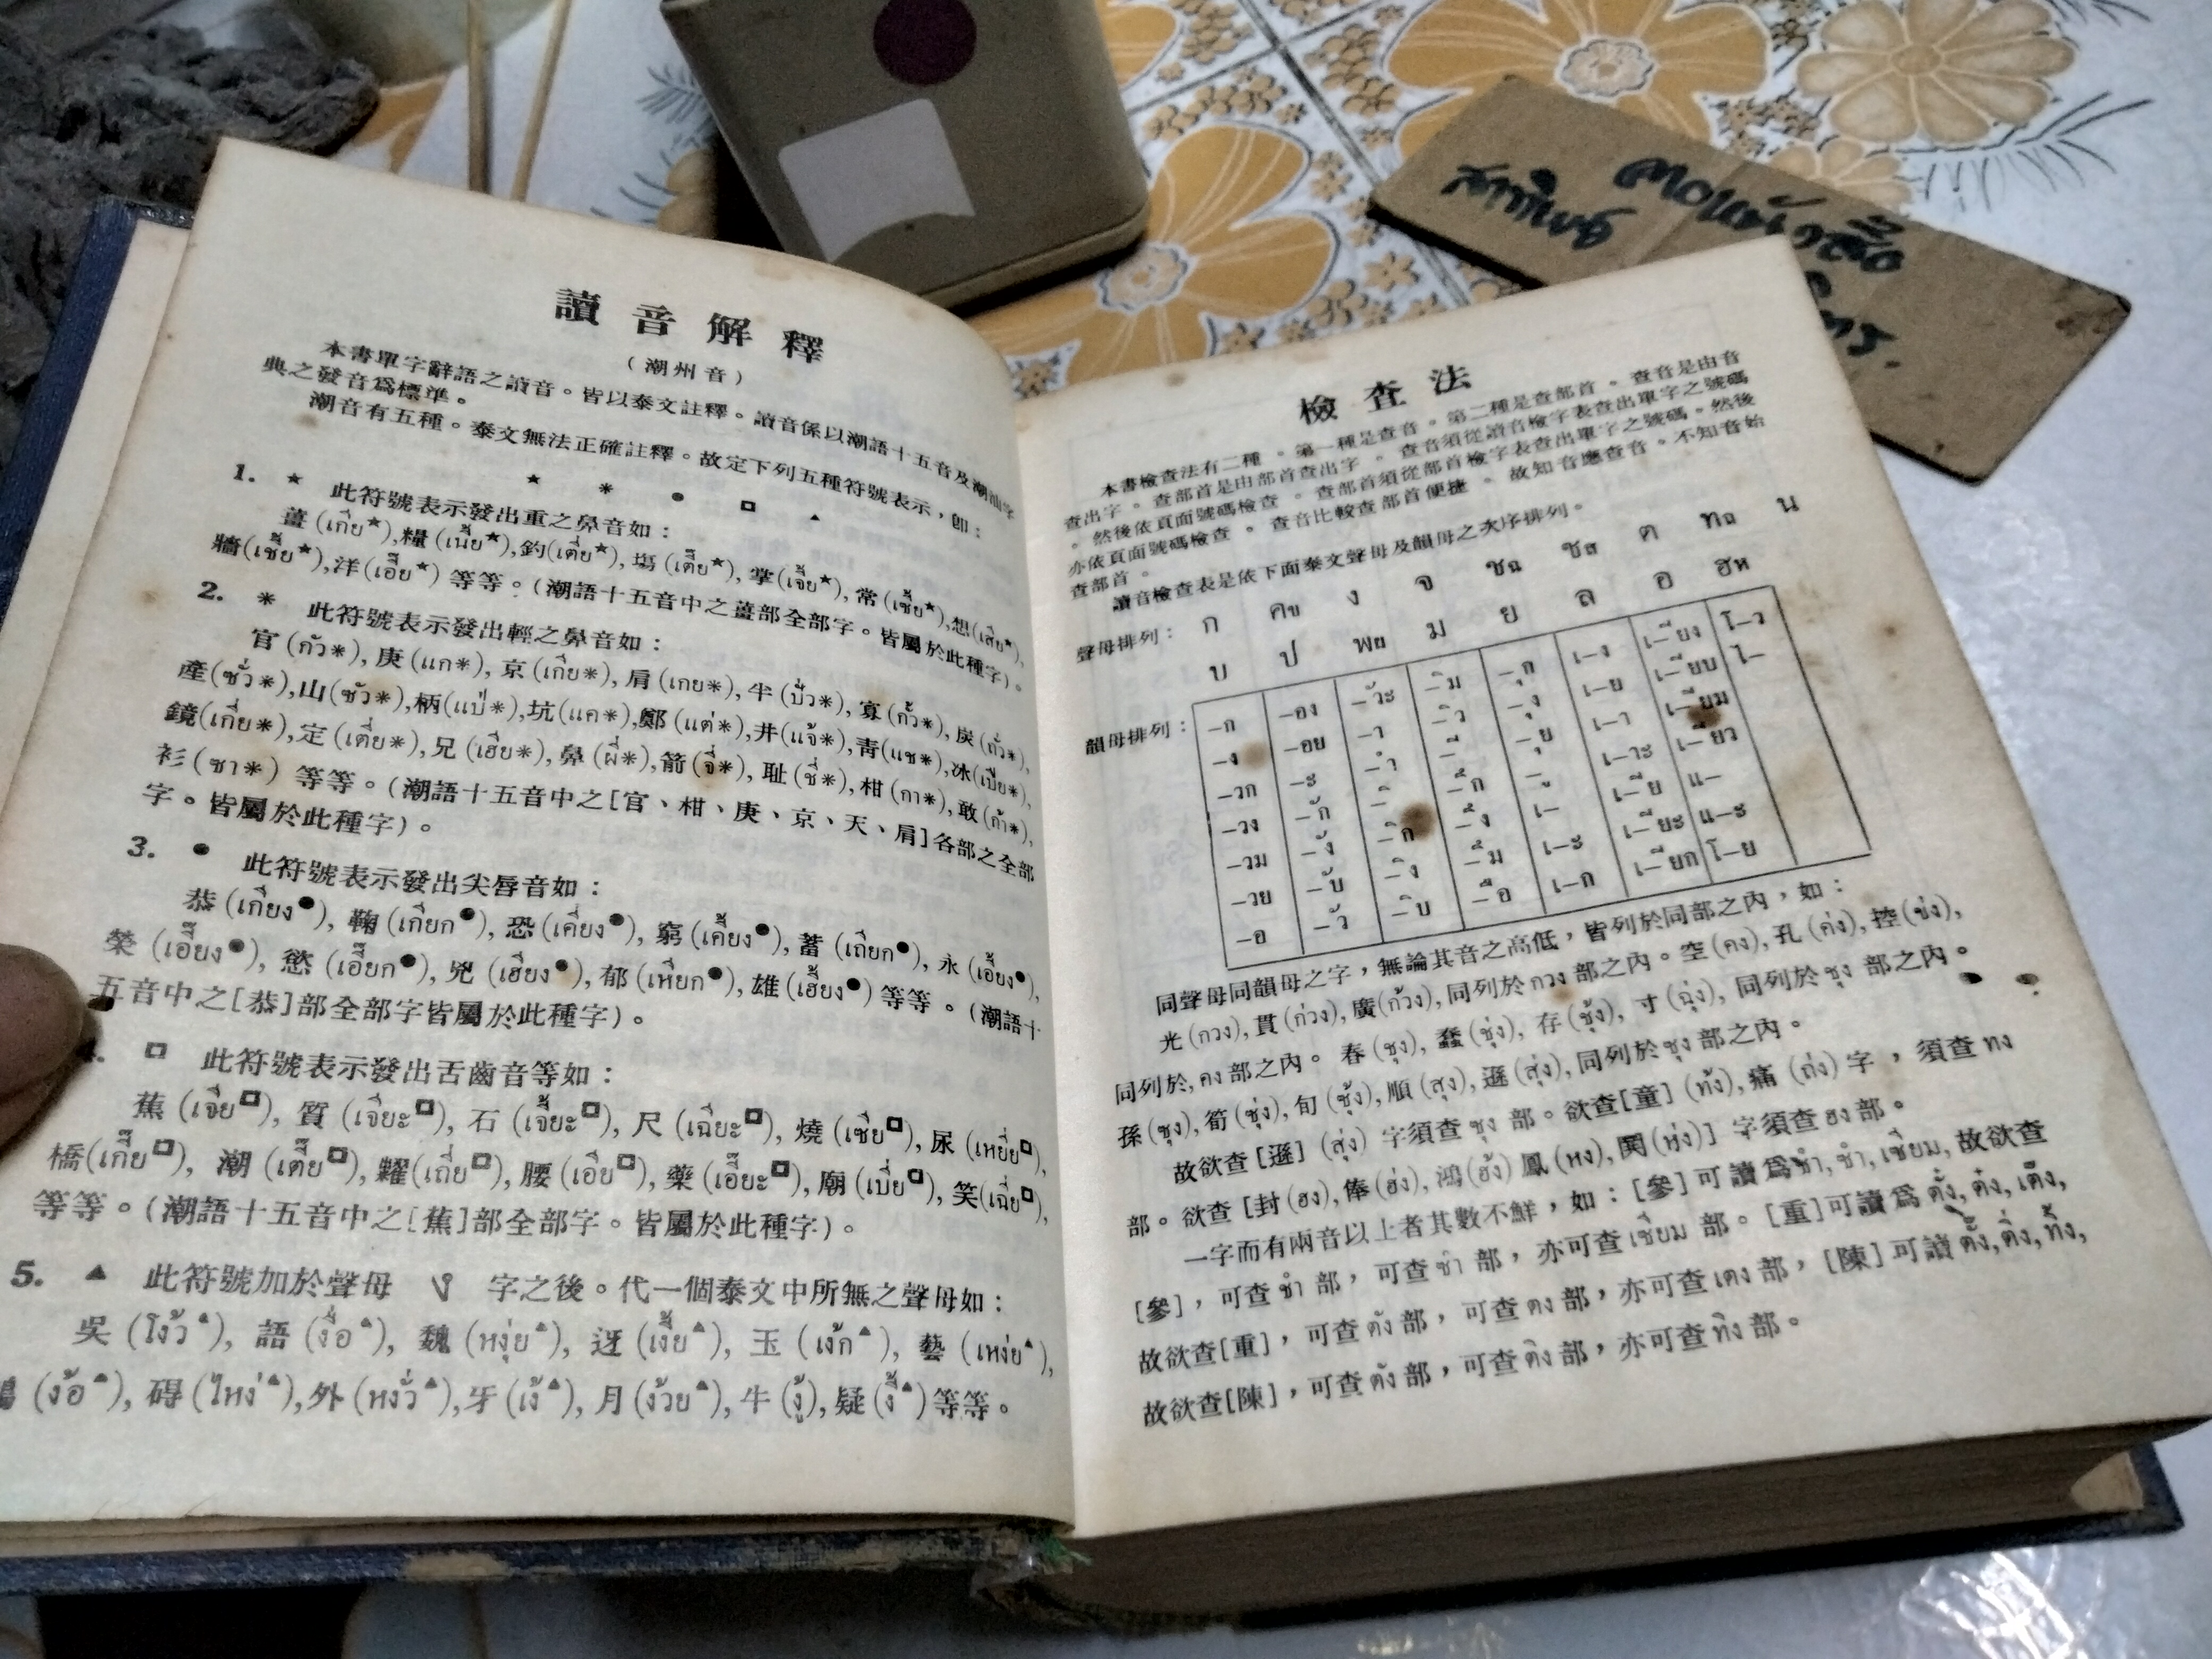 讀音解釋
(潮州音)
本書單字辭語之讀音。皆以泰文註釋。讀音係以潮語十五音及潮汕字
典之發音爲標準。
潮音有五種。泰文無法正確註釋。故定下列五種符號表示，即：
★ * ● □ ▲
1. ★ 此符號表示發出重之鼻音如：
薑(เกีย★),糧(เนี้ย★),釣(เตี่ย★),塲(เตี๊ย★),掌(เจี้ย★),常(เซี้ย★),想(เสี่ย★),
牆(เชี้ย★),洋(เอี๊ย★) 等等。(潮語十五音中之薑部全部字。皆屬於此種字)。
2. * 此符號表示發出輕之鼻音如：
官(กัว*),庚(แก*),京(เกีย*),肩(เกย*),半(ปั่ว*),寡(กั้ว*),炭(ถั่ว*),
產(ซั่ว*),山(ซัว*),柄(แป่*),坑(แค*),鄭(แต่*),井(แจ้*),青(แช*),冰(เปีย*),
鏡(เกี่ย*),定(เตี่ย*),兄(เฮีย*),鼻(ผี่*),箭(จี่*),耻(ชี่*),柑(กา*),敢(ก้า*),
衫(ซา*) 等等。(潮語十五音中之[官、柑、庚、京、天、肩]各部之全部
字。皆屬於此種字)。
3. ● 此符號表示發出尖唇音如：
恭(เกียง●),鞠(เกียก●),恐(เคี่ยง●),窮(เคี้ยง●),蓄(เถียก●),永(เอี้ยง●),
榮(เอี๊ยง●),慾(เอี๊ยก●),兇(เฮียง●),郁(เหียก●),雄(เฮี้ยง●) 等等。(潮語十
五音中之[恭]部全部字皆屬於此種字)。
□ 此符號表示發出舌齒音等如：
蕉(เจีย□),質(เจียะ□),石(เจี้ยะ□),尺(เฉียะ□),燒(เซีย□),尿(เหยี่ย□),
橋(เกี๊ย□),潮(เตี๊ย□),糶(เถี่ย□),腰(เอีย□),藥(เอี๊ยะ□),廟(เบี่ย□),笑(เฉี่ย□),
等等。(潮語十五音中之[蕉]部全部字。皆屬於此種字)。
5. ▲ 此符號加於聲母 ง 字之後。代一個泰文中所無之聲母如：
吳(โง้ว▲),語(งื่อ▲),魏(หงุ่ย▲),迓(เงี้ย▲),玉(เง้ก▲),藝(เหง่ย▲),
(ง้อ▲),碍(ไหง่▲),外(หงั่ว▲),牙(เง้▲),月(ง้วย▲),牛(งู้),疑(งี้▲)等等。
檢查法
本書檢查法有二種。第一種是查音。第二種是查部首。查音是由音
查出字。查部首是由部首查出字。查音須從讀音檢字表查出單字之號碼
。然後依頁面號碼檢查。查部首須從部首檢字表查出單字之號碼。然後
亦依頁面號碼檢查。查音比較查部首便捷。故知音應查音。不知音始
查部首。
讀音檢查表是依下面泰文聲母及韻母之次序排列。
聲母排列： ก คข ง จ ชฉ ซส ต ทถ น
บ ป พผ ม ย ล อ ฮห
韻母排列： –ก –อง –ัวะ –ิม –ุก เ–ง เ–ียง โ–ว
–ง –อย –า –ิว –ุง เ–ย เ–ียบ ไ–
–วก –ะ –ำ –ี –ุย เ–า เ–ียม
–วง –ัก –ิ –ึก –ู เ–าะ เ–ียว
–วม –ัง –ิก –ึง เ– เ–ีย แ–
–วย –ับ –ิง –ึม เ–ะ เ–ียะ แ–ะ
–อ –ัว –ิบ –ือ เ–ก เ–ียก โ–ย
同聲母同韻母之字，無論其音之高低，皆列於同部之內，如：
光(กวง),貫(ก่วง),廣(ก้วง),同列於 กวง 部之內。空(คง),孔(ค่ง),控(ข่ง),
同列於, คง 部之內。春(ชุง),蠢(ชุ่ง),存(ชุ้ง),寸(ฉุ่ง),同列於 ชุง 部之內。
孫(ซุง),筍(ซุ่ง),旬(ซุ้ง),順(สุง),遜(สุ่ง),同列於 ซุง 部之內。
故欲查[遜](สุ่ง) 字須查 ซุง 部。欲查[童](ท้ง),痛(ถ่ง)字，須查 ทง
部。欲查[封(ฮง),俸(ฮ่ง),鴻(ฮ้ง)鳳(หง),閧(ห่ง)] 字須查 ฮง 部。
一字而有兩音以上者其數不鮮，如：[參]可讀爲 ซำ, ชำ, เซียม, 故欲查
[參]，可查 ซำ 部，可查 ชำ 部，亦可查 เซียม 部。[重]可讀爲 ตั้ง, ต๋ง, เต๊ง,
故欲查[重]，可查 ตัง 部，可查 ตง 部，亦可查 เตง 部，[陳]可讀 ตั๊ง, ติ่ง, ทิ้ง,
故欲查[陳]，可查 ตัง 部，可查 ติง 部，亦可查 ทิง 部。